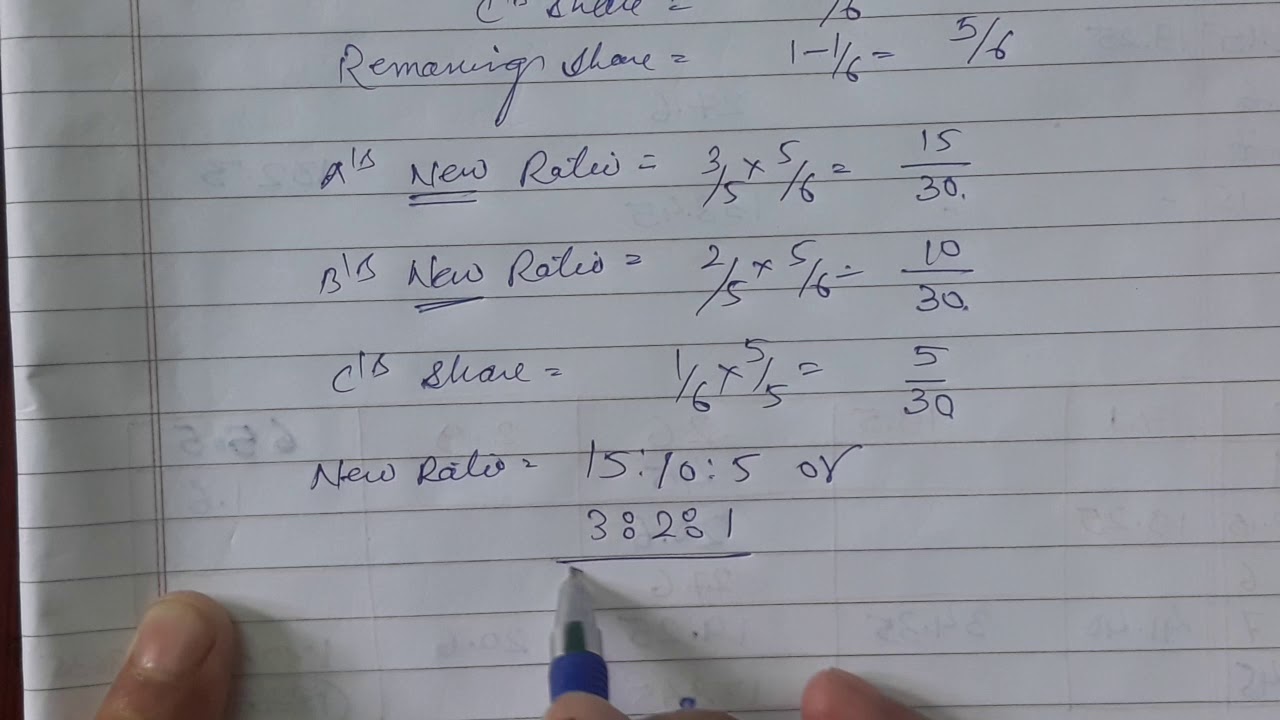 C's Share = 1/6
Remaning Share = 1-1/6= 5/6
A's New Ratio = 3/5 × 5/6 = 15/30.
B's New Ratio = 2/5 × 5/6 = 10/30.
C's Share = 1/6 × 5/5 = 5/30
New Ratio = 15:10:5 or
3:2:1